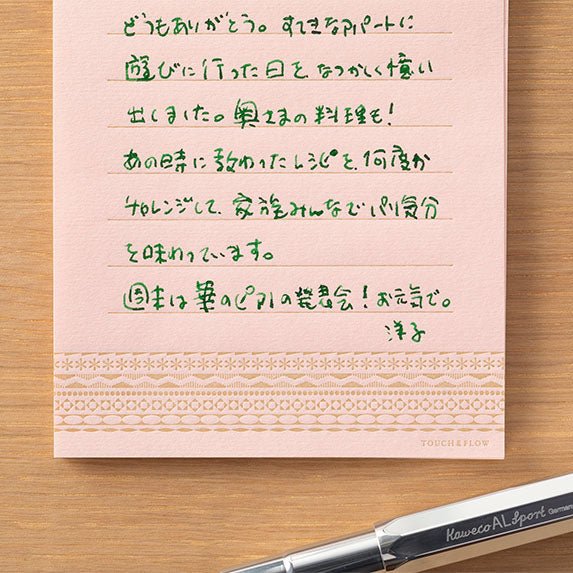 どうもありがとう。すてきなアパートに
遊びに行った日を、なつかしく憶い
出しました。奥さまの料理も!
あの時に教わったレシピを、何度か
チャレンジして、家族みんなでパリ気分
を味わっています。
週末は華のピアノの発表会!お元気で。
洋子
TOUCH & FLOW
Kaweco AL Sport Germany